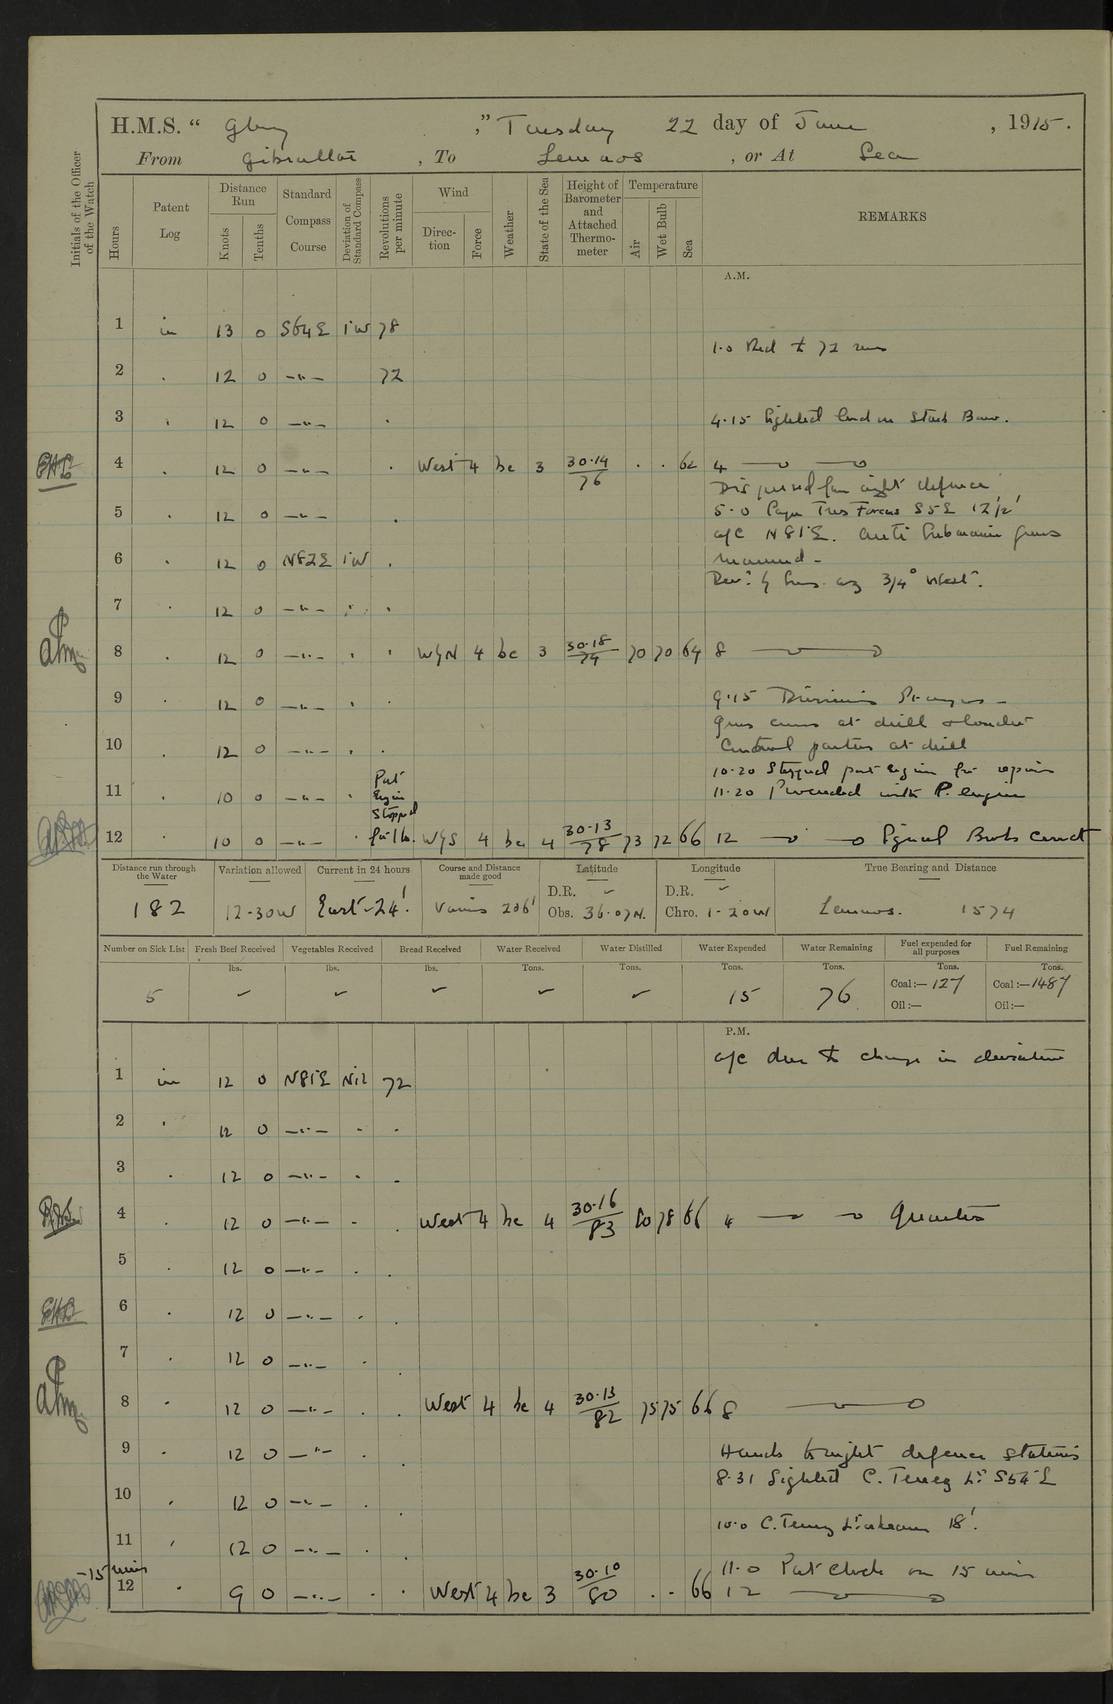 H.M.S. " Glory ," Tuesday 22 day of June , 1915.
From Gibraltar , To Lemnos , or At Sea
Initials of the Officer of the Watch
Hours Patent Log Distance Run Knots Tenths Standard Compass Course Deviation of Standard Compass Revolutions per minute Wind Direction Force Weather State of the Sea Height of Barometer and Attached Thermometer Temperature Air Wet Bulb Sea REMARKS
A.M.
1 in 13 0 S64E 1W 78
1.0 Red to 72 revs
2 . 12 0 —"— 72
3 . 12 0 —"— . 4.15 Sighted land on Starb Bow.
4 . 12 0 —"— . West 4 bc 3 30.14/76 . . 62 4
Dispersed from night defence
5 . 12 0 —"— . 5.0 Cape Tres Forcas S5E 12½'
a/c N81E. Anti Submarine guns
6 . 12 0 N82E 1W . manned –
Dev: by Sun. az 3/4° West.
7 . 12 0 —"— . .
8 . 12 0 —"— . . WbyN 4 bc 3 30.18/74 70 70 64 8
9 . 12 0 —"— . . 9.15 Divisions Prayers –
Guns crews at drill & loader
10 . 12 0 —"— . . Control parties at drill
10.20 Stopped port engine for repairs
11 . 10 0 —"— . Port Engine Stopped for 1 h. 11.20 Proceeded with P. engine
12 . 10 0 —"— . WbyS 4 bc 4 30.13/78 73 72 66 12 Signal Books correct
Distance run through the Water Variation allowed Current in 24 hours Course and Distance made good Latitude Longitude True Bearing and Distance
182 12-30W East-24'. Various 206' D.R. ✓ Obs. 36.07N. D.R. ✓ Chro. 1-20W Lemnos. 1574
Number on Sick List Fresh Beef Received Vegetables Received Bread Received Water Received Water Distilled Water Expended Water Remaining Fuel expended for all purposes Fuel Remaining
lbs. lbs. lbs. Tons. Tons. Tons. Tons. Tons. Tons.
5 ✓ ✓ ✓ ✓ ✓ 15 76 Coal:—127 Coal:—1487
Oil:— Oil:—
P.M.
a/c due to change in deviation
1 in 12 0 N81E Nil 72
2 . 12 0 —"— . .
3 . 12 0 —"— . .
4 . 12 0 —"— . . West 4 bc 4 30.16/83 80 78 66 4 Quarters
5 . 12 0 —"— . .
6 . 12 0 —"— . .
7 . 12 0 —"— .
8 . 12 0 —"— . . West 4 bc 4 30.13/82 75 75 66 8
9 . 12 0 —"— . . Hands to night defence stations
8.31 Sighted C. Tenez Lt S54E
10 . 12 0 —"— . .
10.0 C. Tenez Lt abeam 18'.
11 . 12 0 —"— . .
11.0 Put clock on 15 mins
-15 mins
12 . 9 0 —"— . . West 4 bc 3 30.10/80 . . 66 12